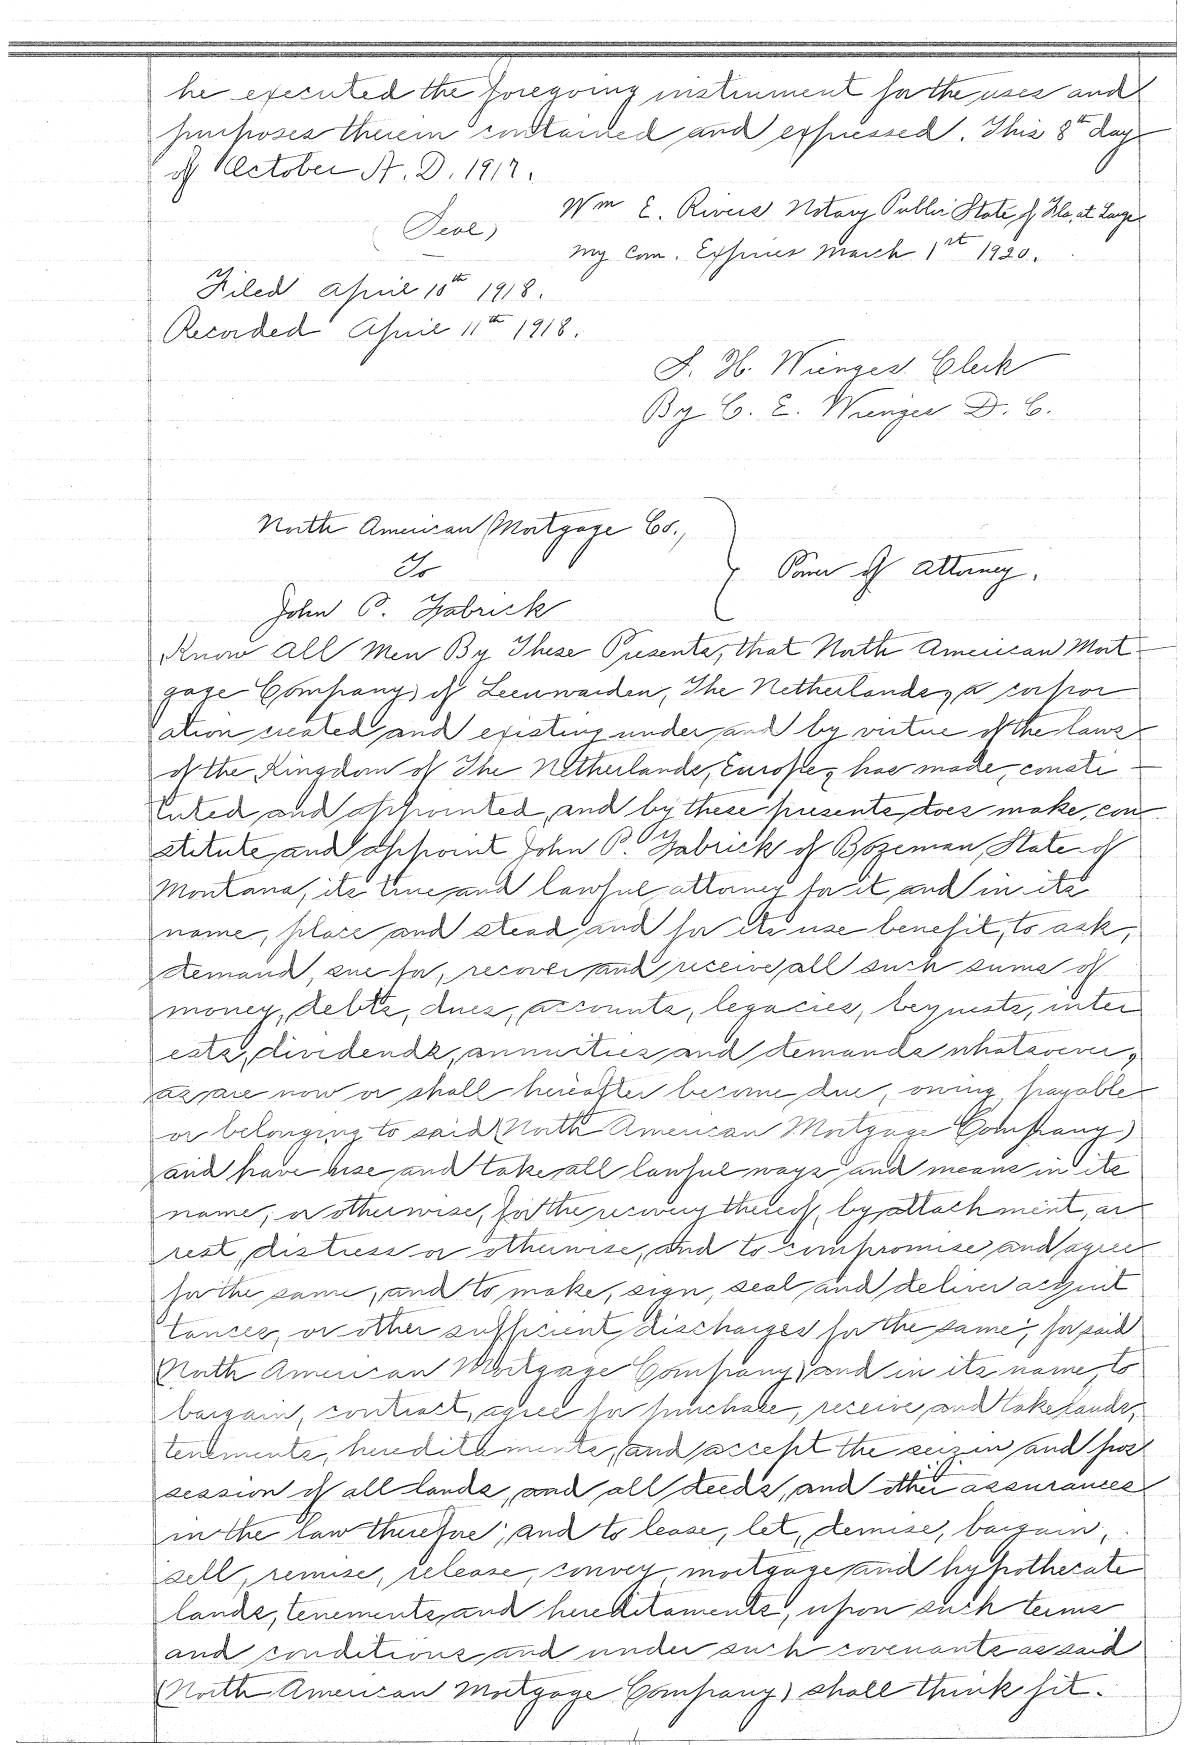 he executed the foregoing instrument for the uses and
purposes therein contained and expressed. This 8th day
of October A. D. 1917.
Wm E. Rivers Notary Public State of Fla. at Large
(Seal)
My Com. Expires March 1st 1920.
Filed April 10th 1918.
Recorded April 11th 1918.
S. H. Wienges Clerk
By C. E. Wienges D. C.
North American Mortgage Co.,
To
Power of Attorney.
John P. Fabrick
Know All Men By These Presents, that North American Mort-
gage Company) of Leeuwarden, The Netherlands, a corpor
ation created and existing under and by virtue of the laws
of the Kingdom of The Netherlands, Europe, has made, consti-
tuted and appointed, and by these presents does make, con
stitute and appoint John P. Fabrick of Bozeman, State of
Montana, its true and lawful attorney for it and in its
name, place and stead and for its use benefit, to ask,
demand, sue for, recover and receive all such sums of
money, debts, dues, accounts, legacies, bequests, inter
ests, dividends, annuities and demands whatsoever,
as are now or shall hereafter become due, owing, payable
or belonging to said (North American Mortgage Company)
and have use and take all lawful ways and means in its
name, or otherwise, for the recovery thereof, by attachment, ar
rest, distress or otherwise, and to compromise and agree
for the same, and to make, sign, seal and deliver acquit
tances, or other sufficient discharges for the same; for said
(North American Mortgage Company) and in its name, to
bargain, contract, agree for purchase, receive, and take lands,
tenements, hereditaments, and accept the seizin and pos
session of all lands, and all deeds, and other assurances
in the law therefore; and to lease, let, demise, bargain,
sell, remise, release, convey, mortgage and hypothecate
lands, tenements, and hereditaments, upon such terms
and conditions, and under such covenants as said
(North American Mortgage Company) shall think fit.